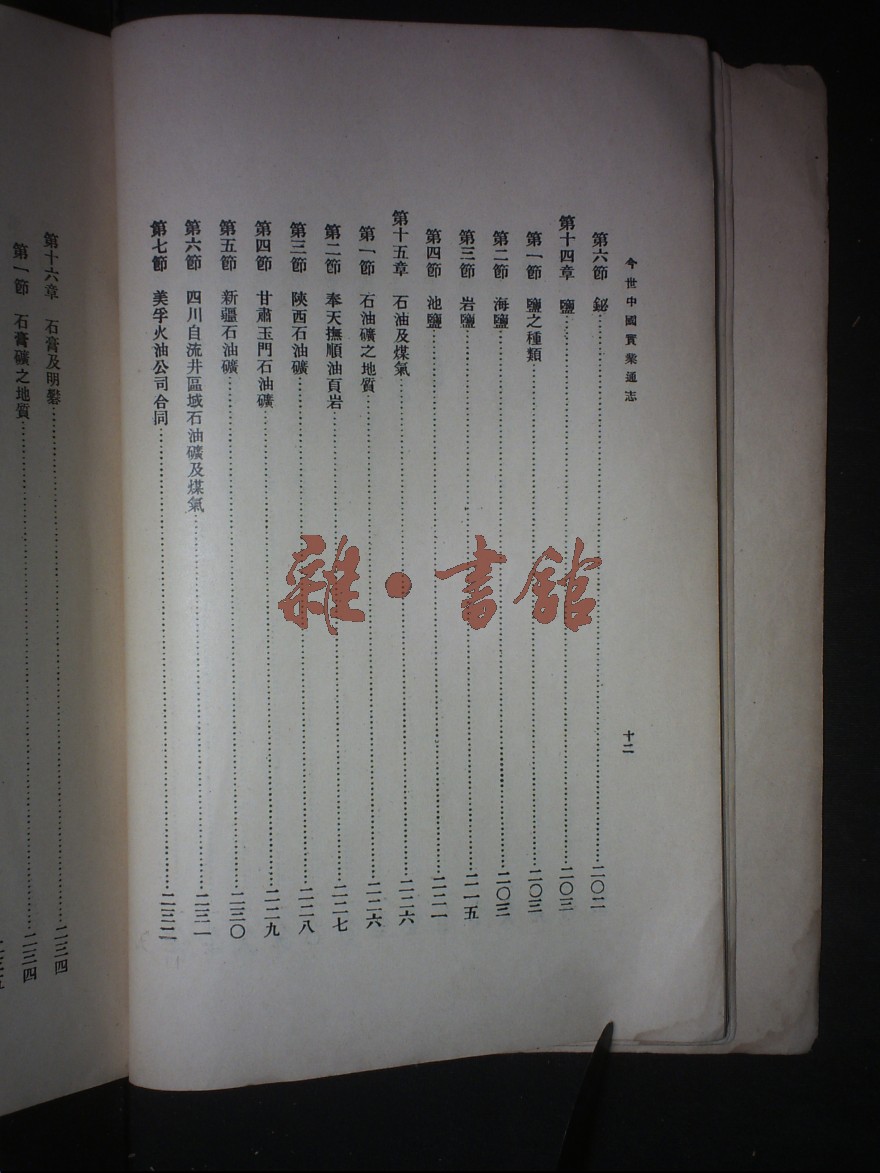 今世中國實業通志
十二
第六節 鉍……二〇二
第十四章 鹽……二〇三
第一節 鹽之種類……二〇三
第二節 海鹽……二〇三
第三節 岩鹽……二一五
第四節 池鹽……二二一
第十五章 石油及煤氣……二二六
第一節 石油礦之地質……二二六
第二節 奉天撫順油頁岩……二二七
第三節 陝西石油礦……二二八
第四節 甘肅玉門石油礦……二二九
第五節 新疆石油礦……二三〇
第六節 四川自流井區域石油礦及煤氣……二三一
第七節 美孚火油公司合同……二三二
第十六章 石膏及明礬……二三四
第一節 石膏礦之地質……二三四
雜·書館